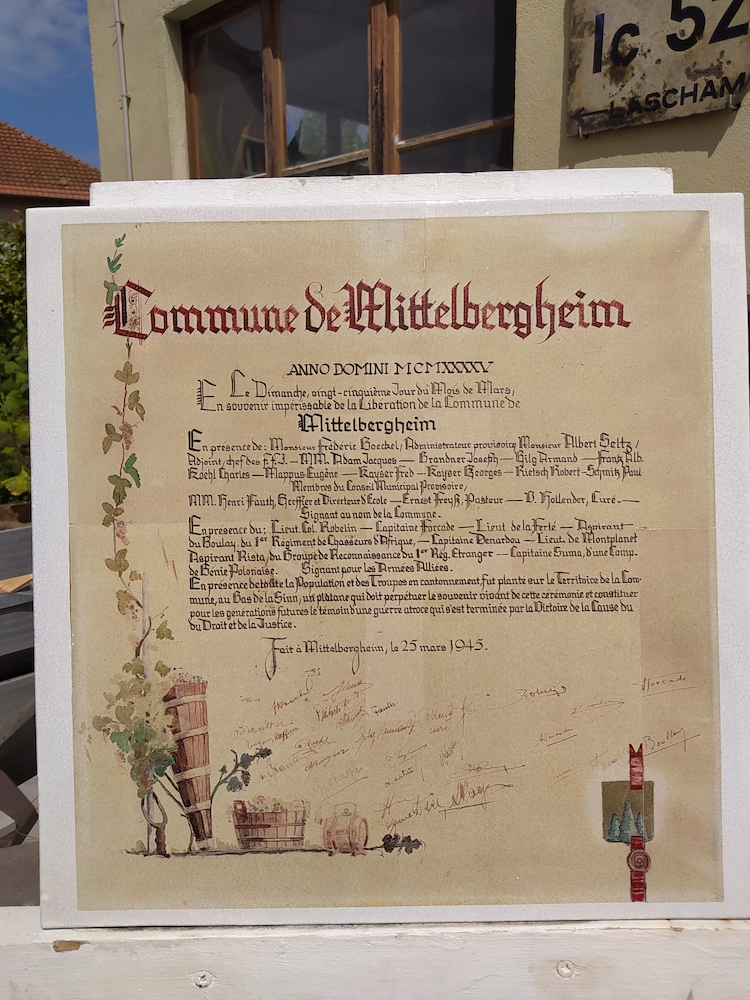 Ic 52
← LASCHAM
Commune de Mittelbergheim
ANNO DOMINI MCMXXXXV
Le Dimanche, vingt-cinquième Jour du Mois de Mars,
En souvenir impérissable de la Libération de la Commune de
Mittelbergheim
En présence de: Monsieur Fréderic Boeckel, Administrateur provisoire, Monsieur Albert Seltz,
Adjoint, chef des F.F.I. — MM. Adam Jacques — Brandner Joseph — Hilg Armand — Frantz Alb.
Koehl Charles — Mappus Eugène — Kayser Fred — Kayser Georges — Rietsch Robert - Schmitz Paul
Membres du Conseil Municipal Provisoire,
MM. Henri Fauth, Greffier et Directeur d'Ecole — Ernest Freyß, Pasteur — Hollender, Curé. —
Signant au nom de la Commune.
En présence du: Lieut. Col. Robelin — Capitaine Forcade — Lieut. de la Ferté — Aspirant
du Boulay, du 1er Régiment de Chasseurs d'Afrique, — Capitaine Denardou — Lieut. de Montplanet
Aspirant Rista, du Groupe de Reconnaissance du 1er Rég. Etranger — Capitaine Suma, d'une Comp.
de Génie Polonaise. Signant pour les Armées Alliées.
En présence de toute la Population et des Troupes en cantonnement, fut planté sur le Territoire de la Com-
mune, au Bas de la Sinn, un platane qui doit perpétuer le souvenir vivant de cette cérémonie et constituer
pour les générations futures le témoin d'une guerre atroce qui s'est terminée par la Victoire de la Cause du
du Droit et de la Justice.
Fait à Mittelbergheim, le 25 mars 1945.
Forcade
Boullay